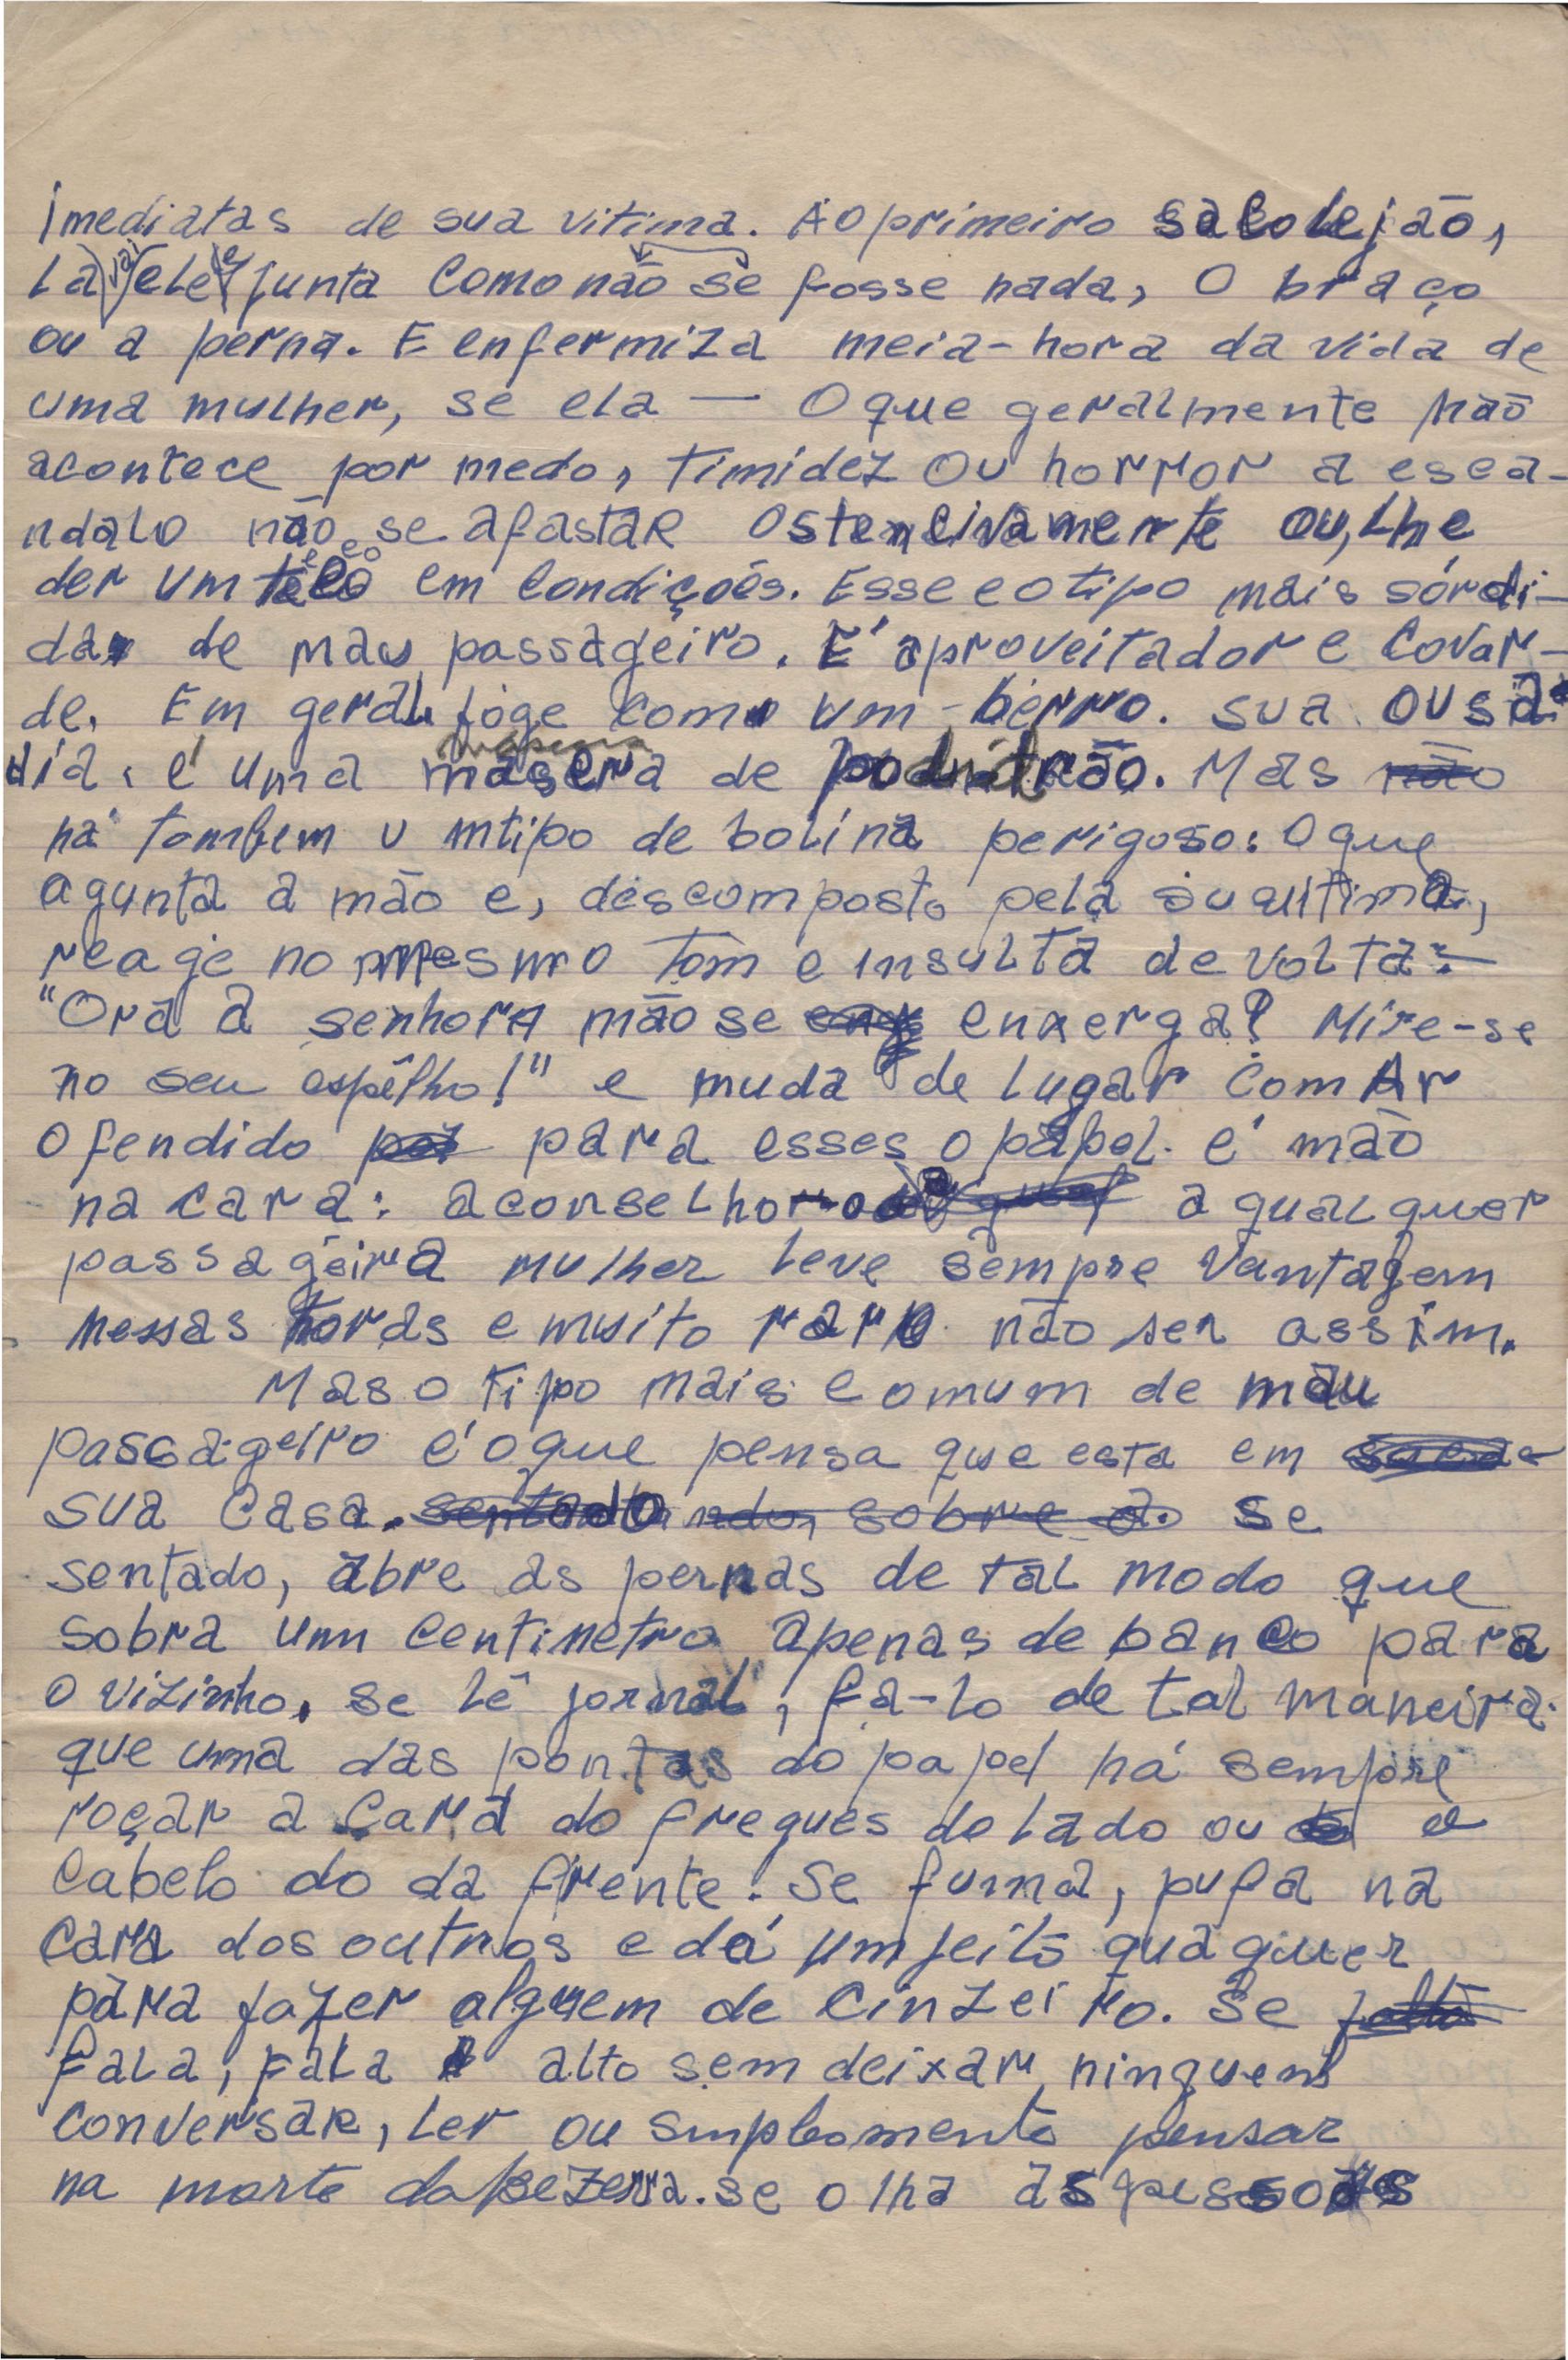 imediatas de sua vitima. Ao primeiro sacolejão,
La vai ele e junta como não se fosse nada, o braço
ou a perna. E enfermiza meia-hora da vida de
uma mulher, se ela — O que geralmente não
acontece por medo, timidez ou horror a esca-
ndalo não se afastar ostencivamente ou, lhe
der um em condições. Esse e o tipo mais sórdi-
do de mau passageiro. É aproveitador e covar-
de. Em geral foge com um berro. sua ousa-
dia, é uma mascara de poltrão. Mas não
há tambem um tipo de bolina perigoso: O que
agunta a mão e, descomposto pela sua vitima,
reage no mesmo tom e insulta de volta:—
"Ora a senhora não se enxerga? Mire-se
no seu espêlho!" e muda de lugar com Ar
Ofendido para esses o papel é mão
na cara: aconselho a qualquer
passageira mulher leve sempre vantagem
nessas horas e muito raro não ser assim.
Mas o tipo mais comum de mau
passageiro é o que pensa que esta em
sua casa. sentado sobre a se
sentado, abre as pernas de tal modo que
sobra um centimetro apenas de banco para
o vizinho. se lê jornal, fá-lo de tal maneira
que uma das pontas do papel há sempre
roçar a cara do fregues do lado ou o
cabelo do da frente. Se fuma, pufa na
cara dos outros e dá um jeito quaquer
para fazer alguem de cinzeiro. Se
fala, fala alto sem deixar ninguem
conversar, ler ou simplesmente pensar
na morte da bezerra. se olha as pessoas